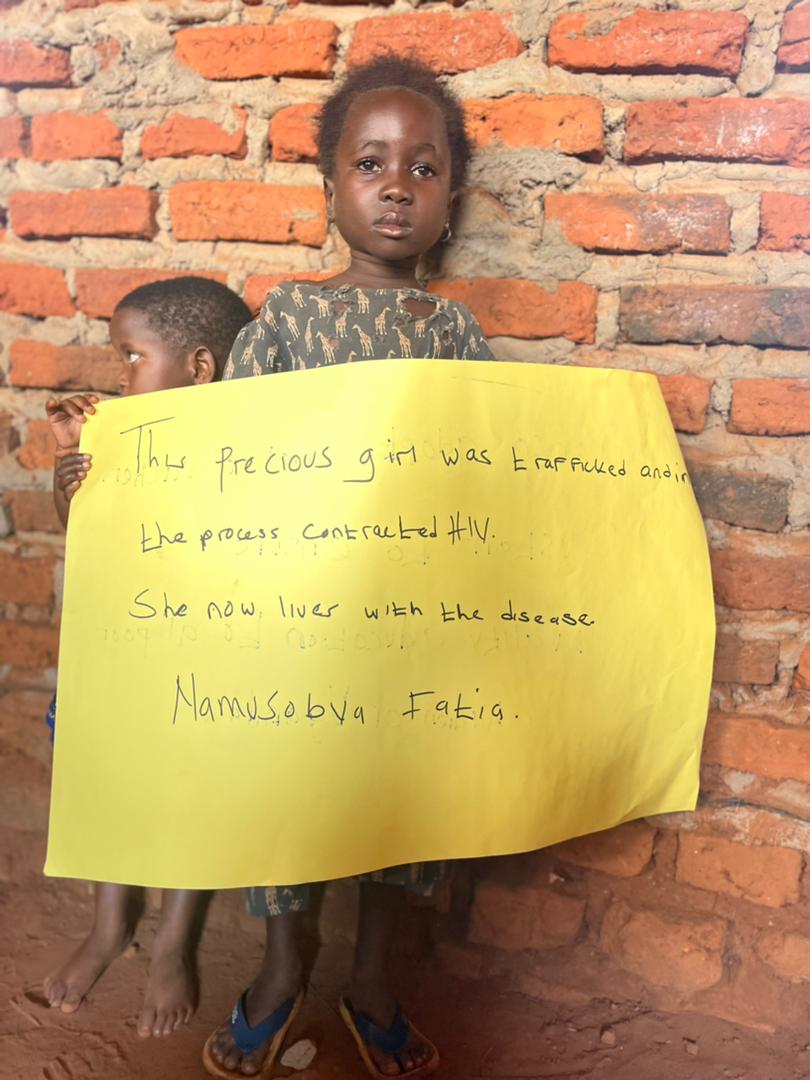 This precious girl was trafficked and in
the process contracted HIV.
She now lives with the disease.
Namusobya Fatia.